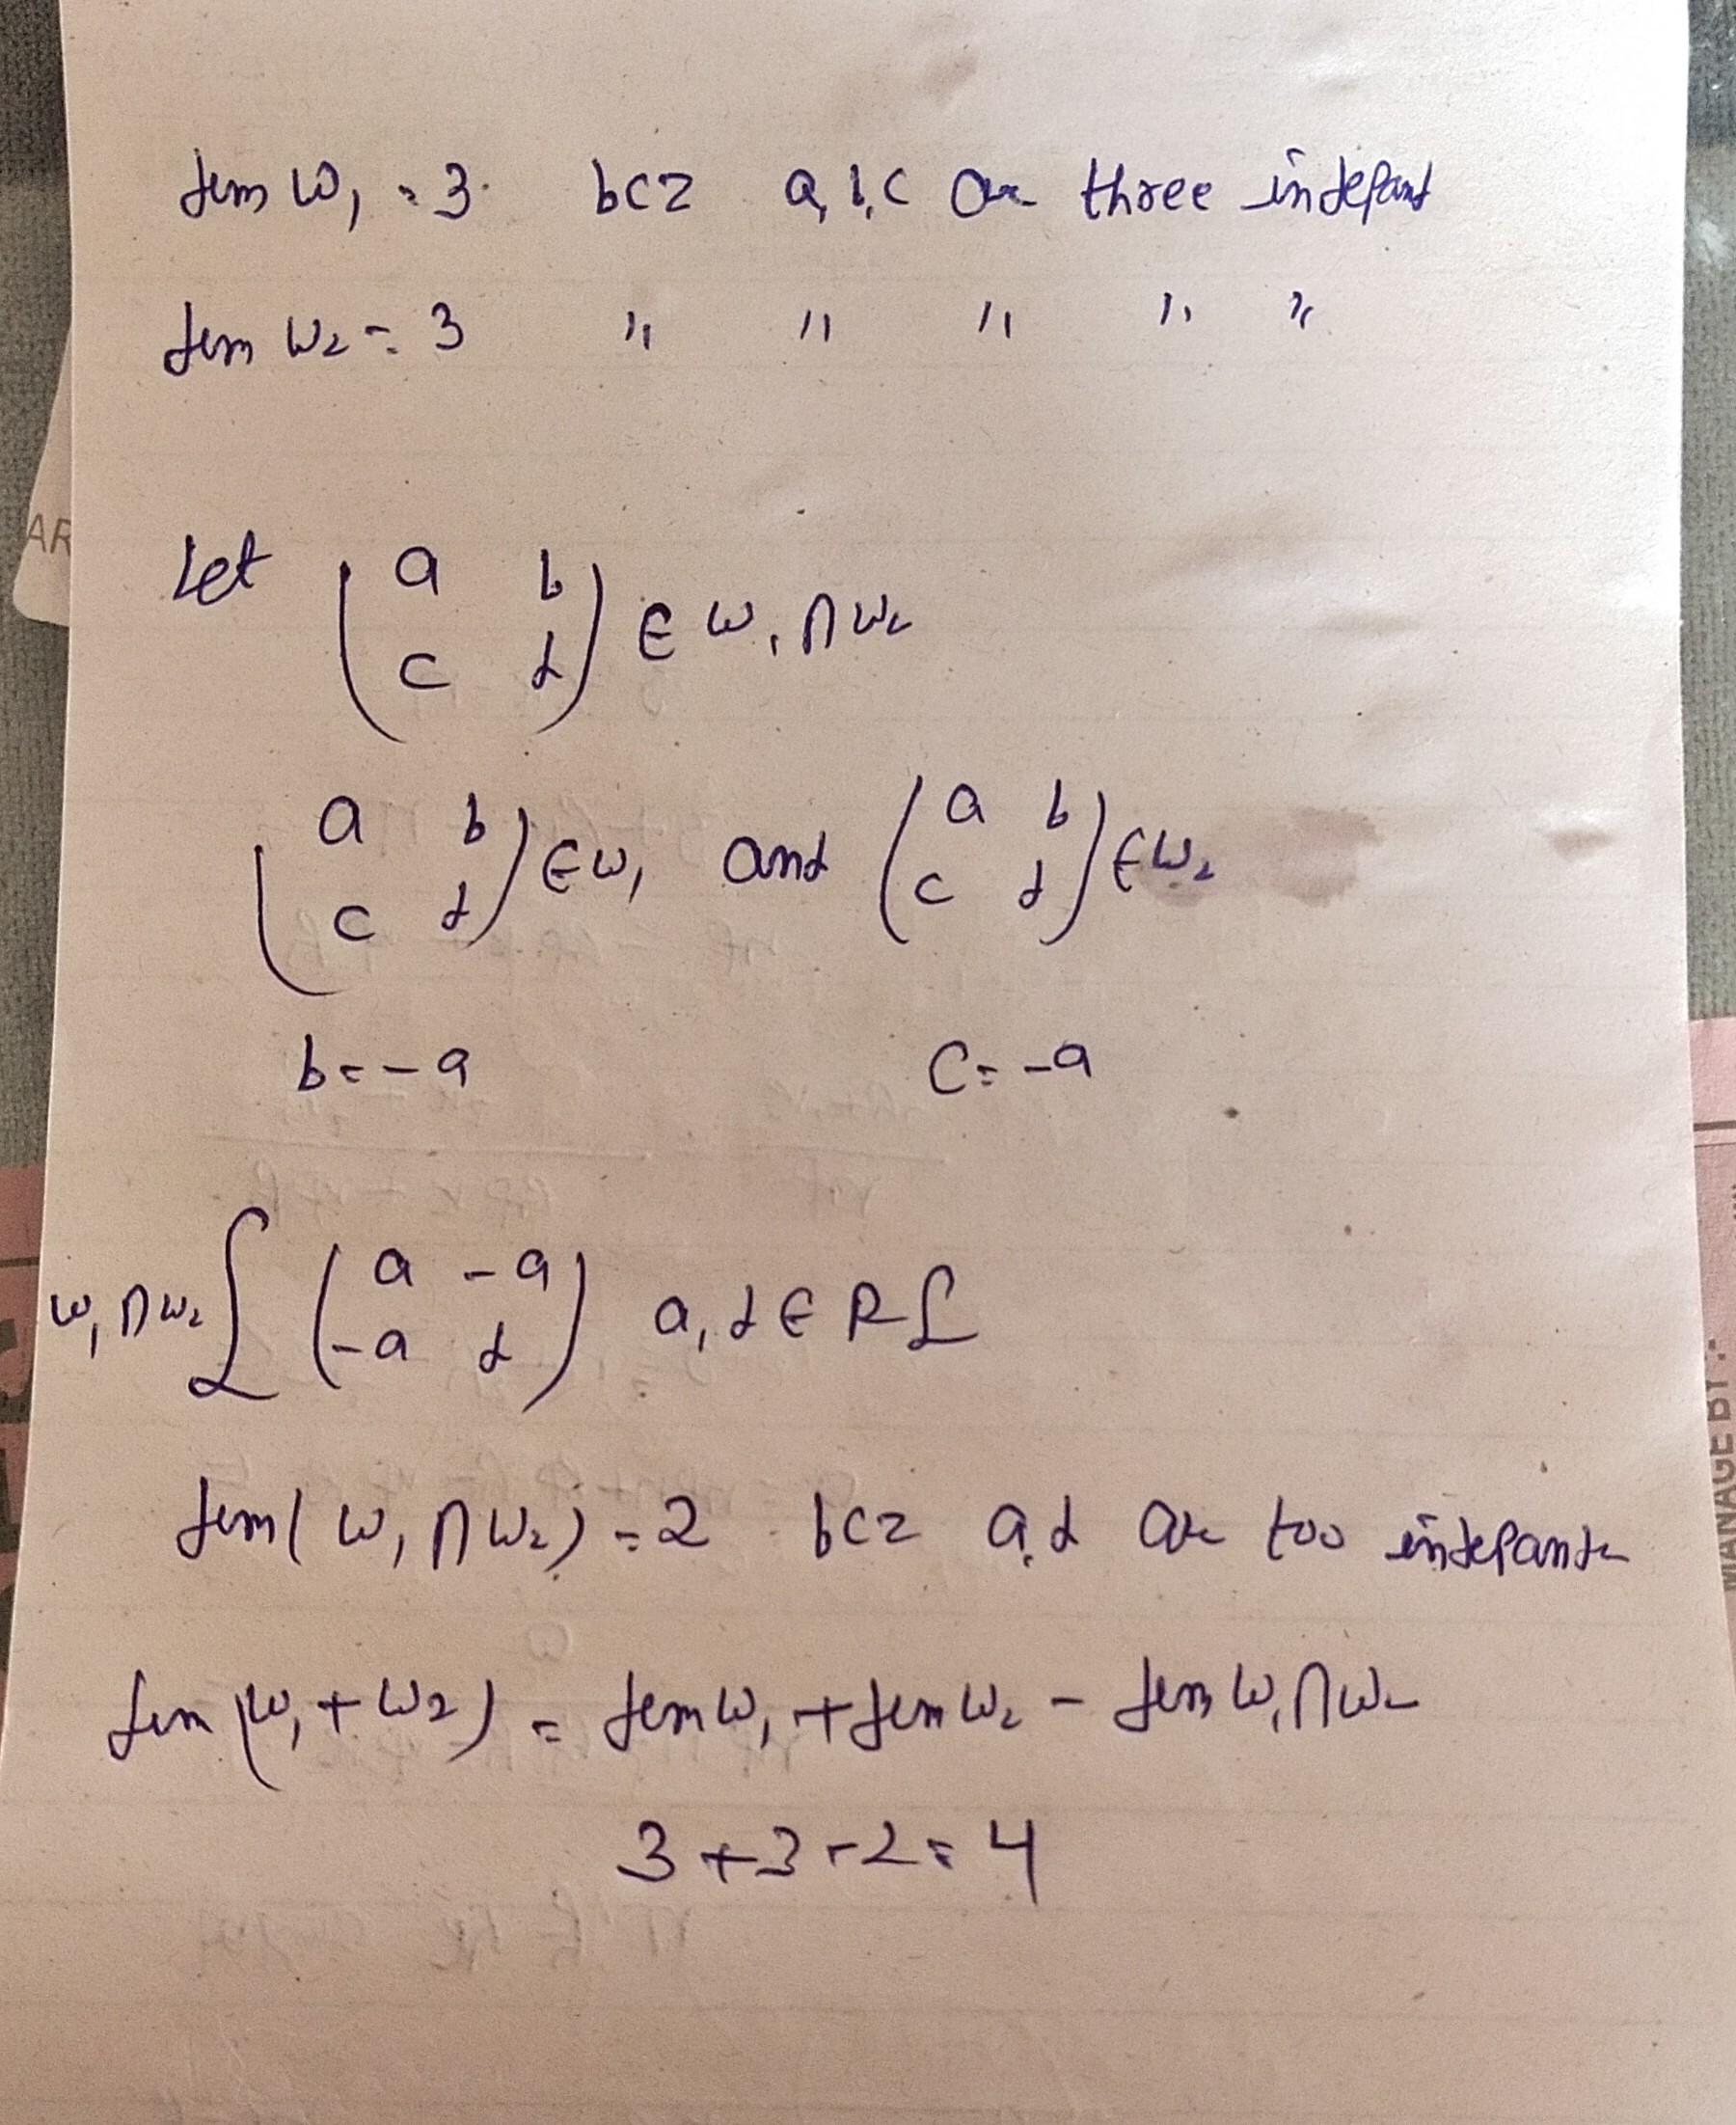 dem W₁ = 3. bcz a, b, c are three indepant
dem W₂ = 3 " " " " "
Let ( a b
c d ) ∈ W₁ ∩ W₂
( a b
c d ) ∈ W₁ and ( a b
c d ) ∈ W₂
b = -a C = -a
W₁ ∩ W₂ { ( a -a
-a d ) a, d ∈ R }
dem( W₁ ∩ W₂ ) = 2 bcz a, d are too indepante
dim (W₁ + W₂) = dem W₁ + dem W₂ - dem W₁ ∩ W₂
3 + 3 - 2 = 4
AR
MANAGE BY :-